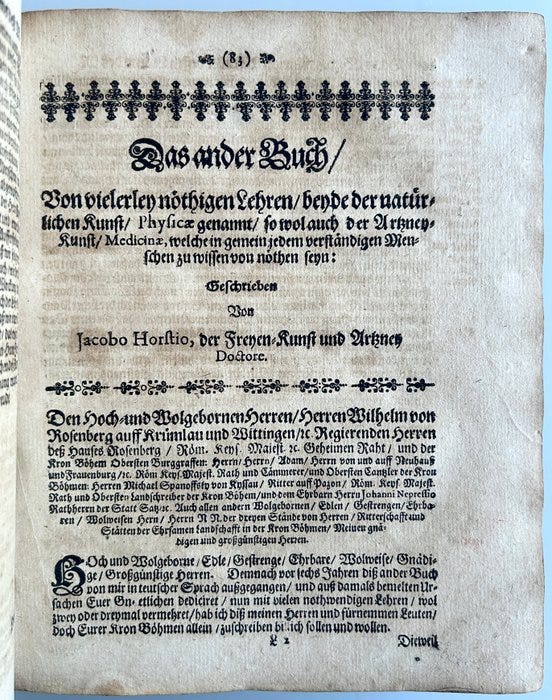 (83)
Das ander Buch/
Von vielerley nöthigen Lehren/ beyde der natür-
lichen Kunst/ Physicæ genannt/ so wol auch der Artzney-
Kunst/ Medicinæ, welche in gemein jedem verständigen Men-
schen zu wissen von nöthen seyn:
Geschrieben
Von
Jacobo Horstio, der Freyen-Kunst und Artzney
Doctore.
Den Hoch- und Wolgebornen Herren/ Herren Wilhelm von
Rosenberg auff Krümlau und Wittingen/ ꝛc. Regierenden Herren
deß Hauses Rosenberg / Röm. Keys. Majest. ꝛc. Geheimen Raht / und der
Kron Böhem Obersten Burggraffen: Herrn/ Herrn/ Adam/ Herrn von und auff Neuhauß
und Frauenburg /ꝛc. Röm Keys. Majest. Rath und Cämmerer/ und Obersten Cantzler der Kron
Böhmen: Herren Michael Spanoffsky von Lyssau / Ritter auff Pazon / Röm. Keys. Majest.
Rath und Obersten Landschreiber der Kron Böhem/ und dem Ehrbarn Herrn Johanni Neprestio
Rathherrn der Statt Satz/ꝛc. Auch allen andern Wolgebornen / Edlen / Gestrengen/ Ehrba-
ren / Wolweisen Herrn / Herrn N N. der dreyen Stände von Herren / Ritterschafft und
Stätten der Ehrsamen Landschafft in der Kron Böhmen / Meinen gnä-
digen und großgünstigen Herren.
Hoch und Wolgeborne/ Edle/ Gestrenge/ Ehrbare/ Wolweise/ Gnädi-
ge/ Großgünstige Herren. Demnach vor sechs Jahren diß ander Buch
von mir in teutscher Sprach außgegangen/ und auß damals bemelten Ur-
sachen Euer Gn- etlichen dediciret / nun mit vielen nothwendigen Lehren / wol
zwey oder dreymal vermehret/ hab ich diß meinen Herren und fürnemmen Leuten/
doch Eurer Kron Böhmen allein /zuschreiben billich sollen und wollen.
L 2 Dieweil